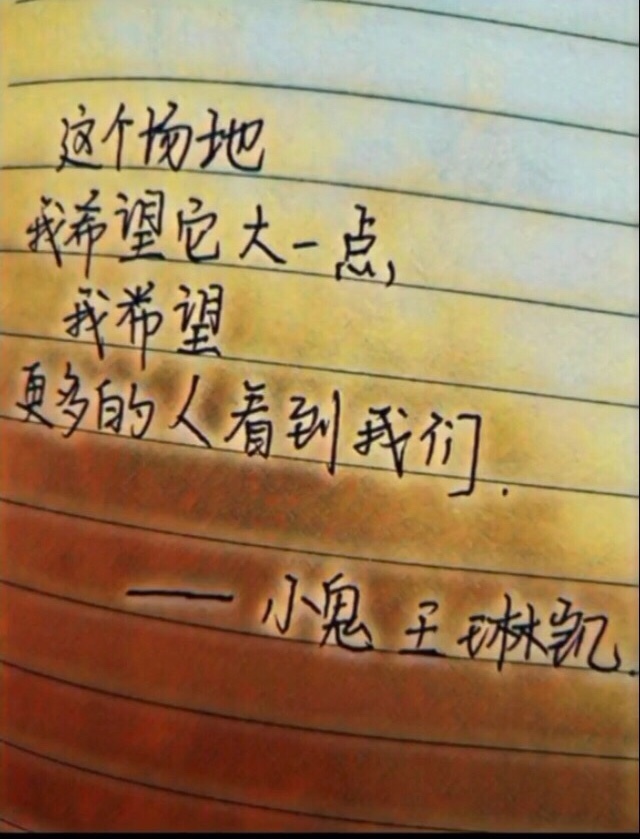 这个场地
我希望它大一点，
我希望
更多的人看到我们.
——小鬼 王琳凯.